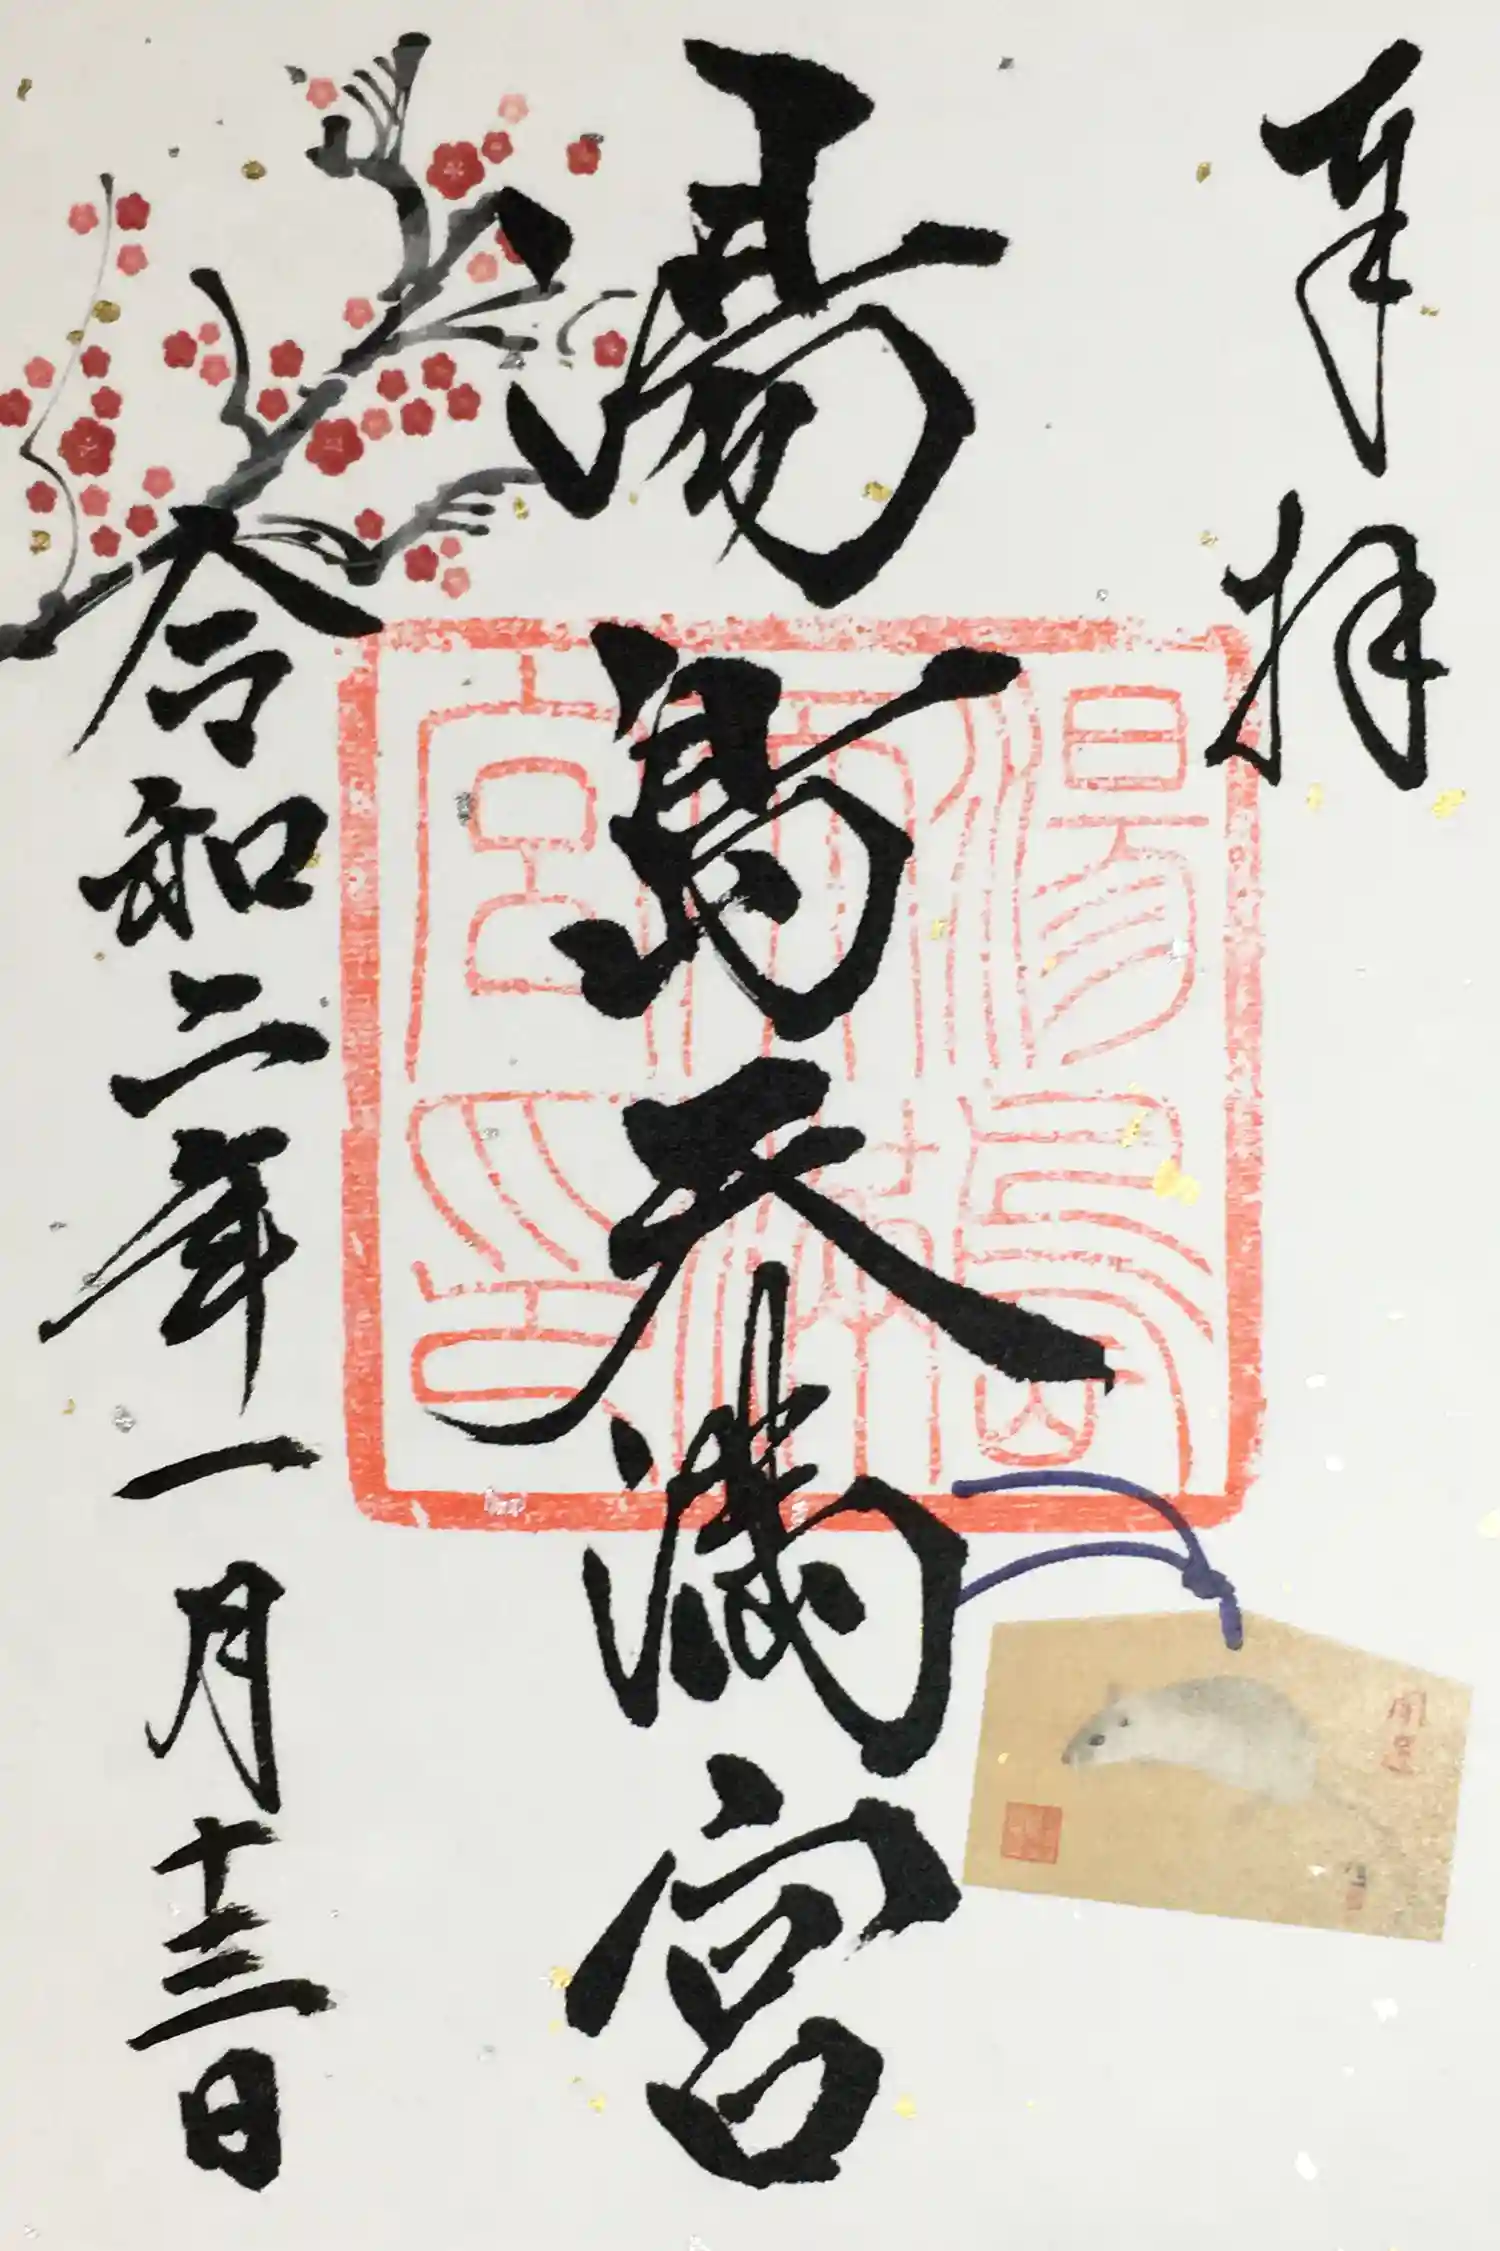 奉拝
湯島天満宮
湯島神社宮印
令和二年一月十三日